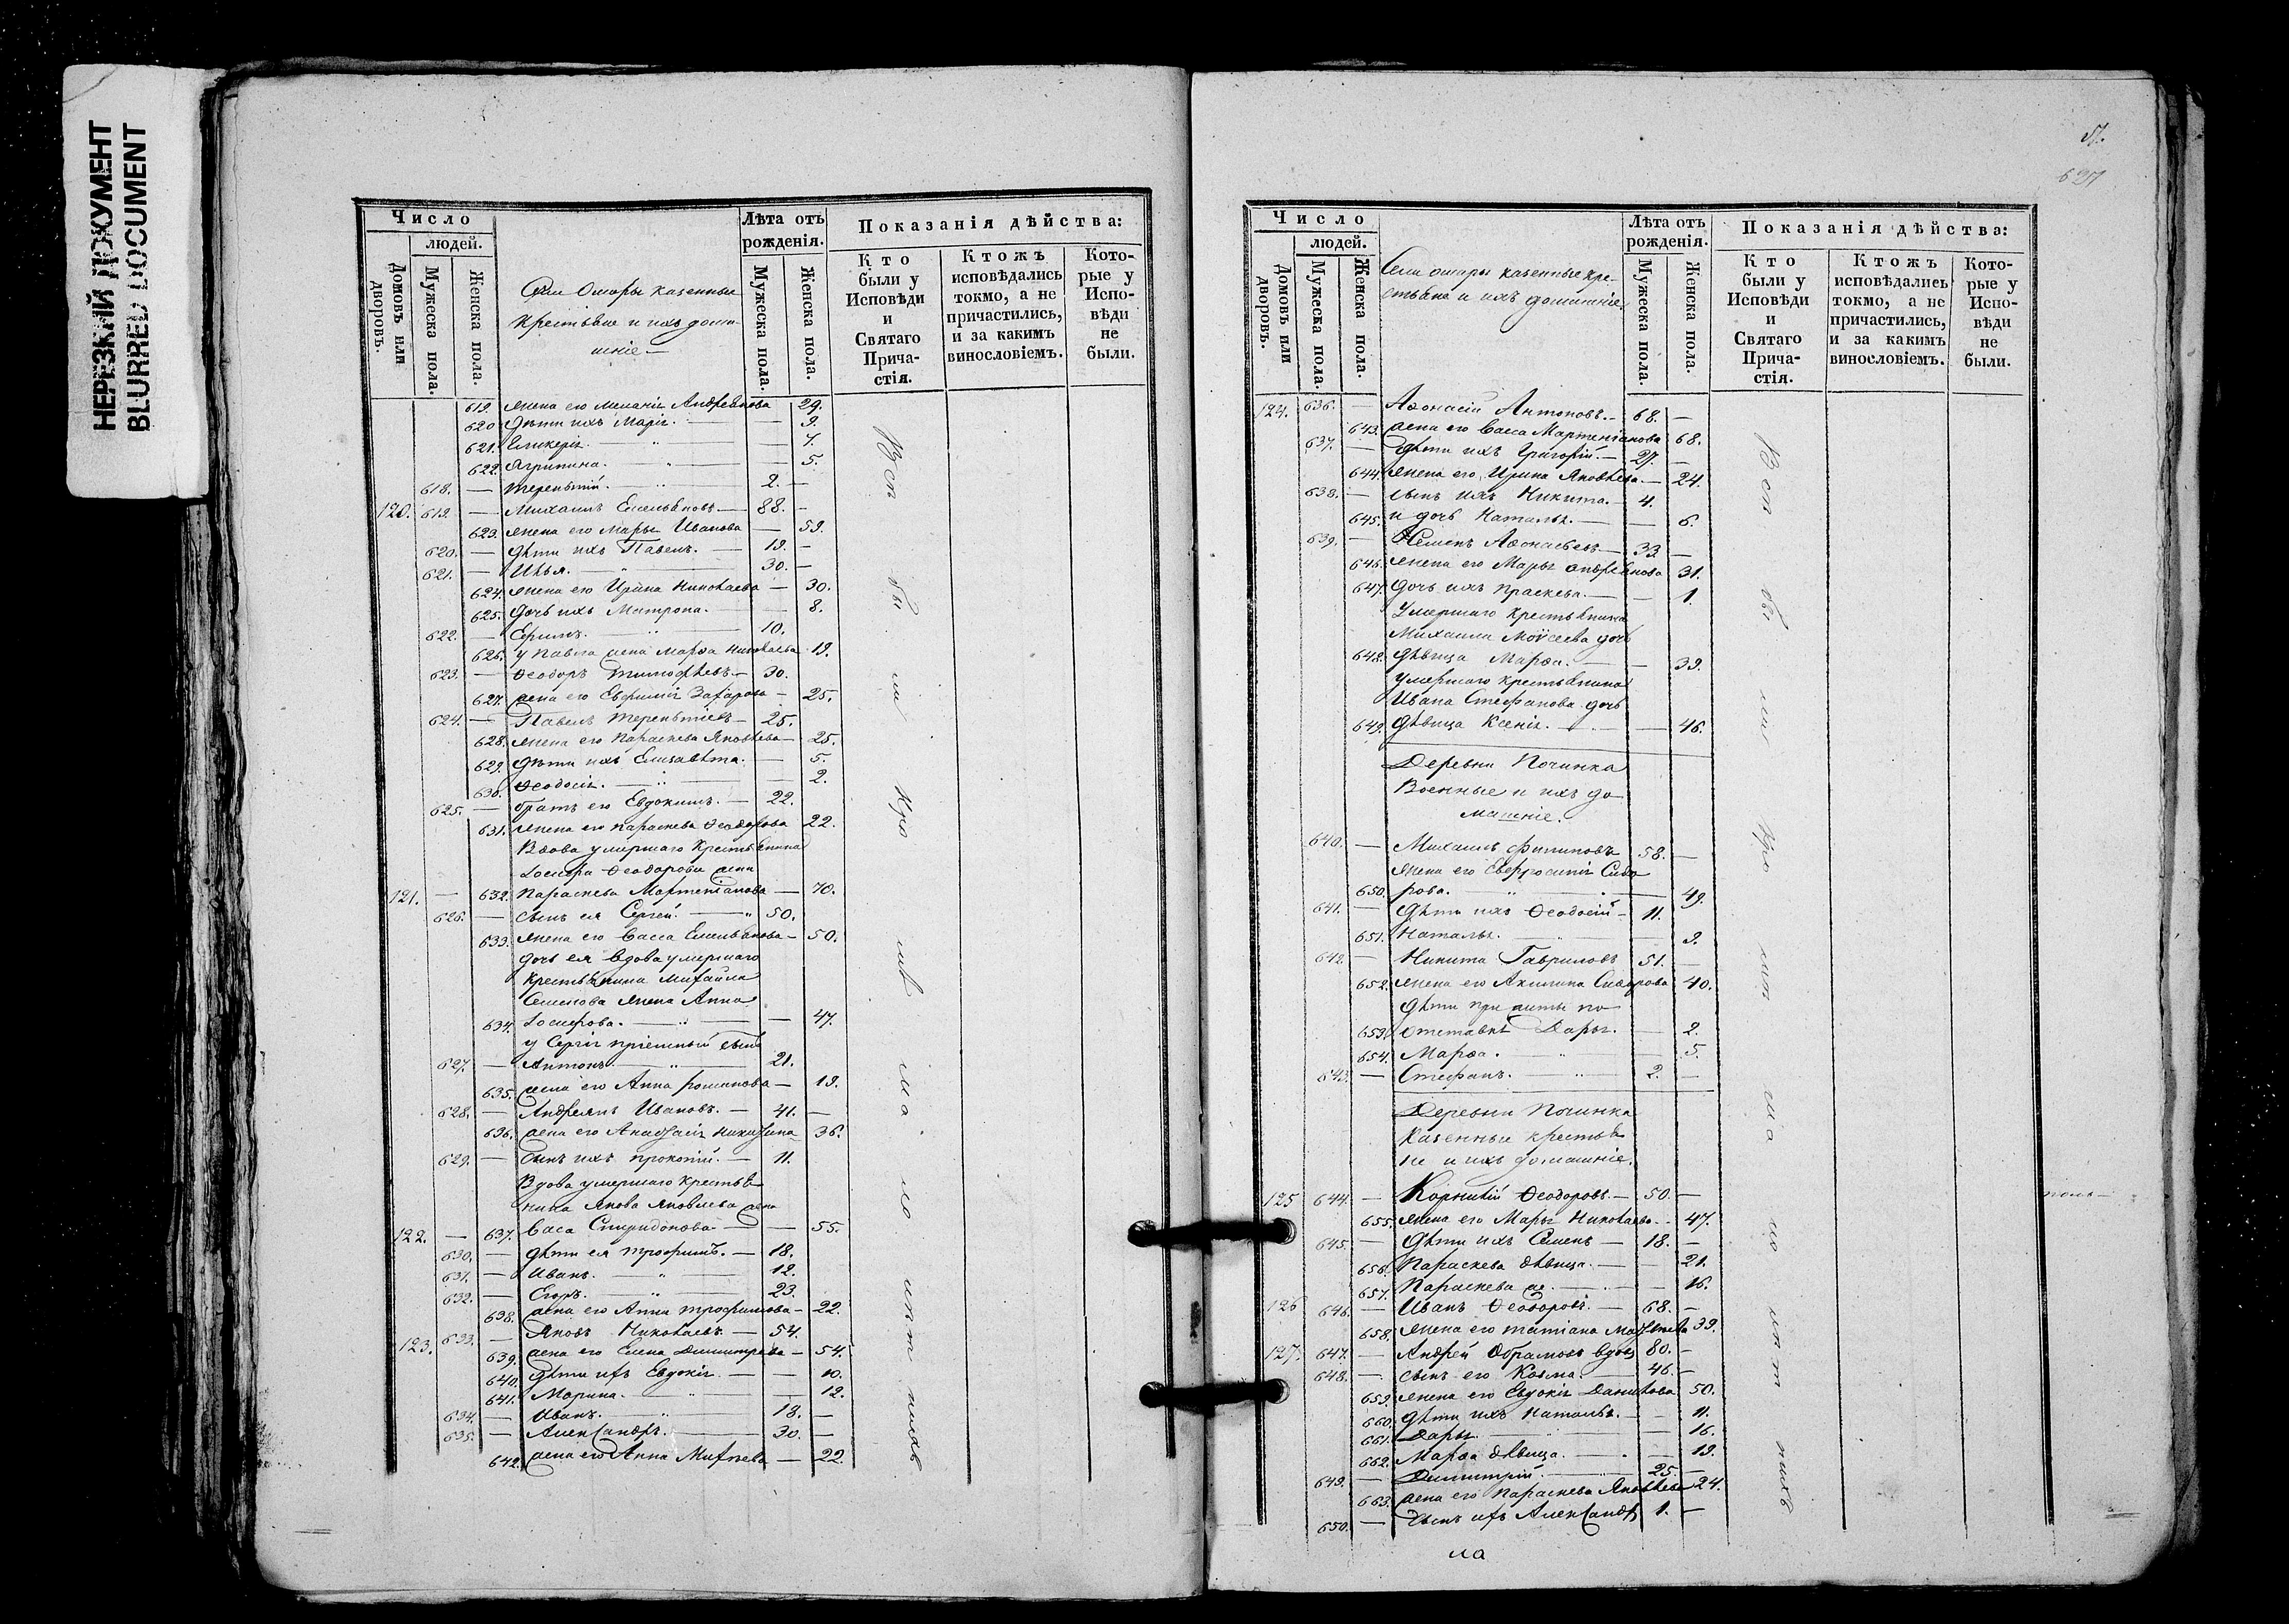 НЕРЕЗКИЙ ДОКУМЕНТ
BLURRED DOCUMENT
Число
людей.
Домовъ или дворовъ.
Мужеска пола.
Женска пола.
Села Отары казенные
крестьяне и ихъ дома-
шніе
Лѣта отъ рожденія.
Мужеска пола.
Женска пола.
Показанія дѣйства:
Кто были у Исповѣди и Святаго Прича-стія.
Ктожъ исповѣдались токмо, а не причастились, и за какимъ винословіемъ.
Кото-рые у Испо-вѣди не были.
619. жена его Меланія Андреянова — 29.
620 Дѣти ихъ Марія. — 9.
621. Гликерія. " — 7.
622. Агрипина. " — 5.
618. — Терентій. " 2. —
120. 619. — Михаилъ Емельяновъ — 88. —
623. жена его Марья Иванова — 59.
620. — дѣти ихъ Павелъ. — 19. —
621. — Илья. " 30. —
624. жена его Ирина Николаева — 30.
625. дочь ихъ Матрона. — 8.
622. — Ефимъ. " 10.
626. у Павла жена Марѳа Николаева 19.
623. — Ѳеодоръ Тимофѣевъ — 30.
627. жена его Евфимія Захарова — 25.
624. — Павелъ Терентіевъ — 25.
628. жена его Параскева Яковлева — 25.
629. дѣти ихъ Елисавета. — 5.
630. Ѳеодосія. " — 2.
625. — братъ его Евдокимъ. — 22.
631. жена его Параскева Ѳеодорова 22.
Вдова умершаго крестьянина
Іосифа Ѳеодорова жена
121. — 632. Параскева Мартеніанова — 70.
626. — сынъ ея Сергей. " 50.
633. жена его Васса Емельянова — 50.
дочь ея вдова умершаго
крестьянина Михайла
Семенова жена Анна
634. Іосифова. " — 47.
у Сергія пріемный сынъ
627. — Антонъ. " 21.
635. жена его Анна Романова — 19.
628. — Андреянъ Ивановъ. — 41. —
636. жена его Анастасія Никитина 36.
629. — сынъ ихъ Прокопій. — 11.
Вдова умершаго крестья
нина Якова Яковлева жена
122. — 637. Васа Спиридонова — 55.
630. — дѣти ея Трофимъ. — 18.
631. — Иванъ. " 12.
632. — Егоръ. " 23.
638. жена его Анна Трофимова — 22.
123. 633. — Яковъ Николаевъ. — 54.
639. жена его Елена Димитрева — 54.
640. дѣти ихъ Евдокія. — 10.
641. Марина. " — 12.
634. — Иванъ. " 18. —
635. — Александръ. — 30. —
642. жена его Анна — 22.
57.
627
Число
людей.
Домовъ или дворовъ.
Мужеска пола.
Женска пола.
Села Отары казенные кре-
стьяне и ихъ домашніе
Лѣта отъ рожденія.
Мужеска пола.
Женска пола.
Показанія дѣйства:
Кто были у Исповѣди и Святаго Прича-стія.
Ктожъ исповѣдались токмо, а не причастились, и за какимъ винословіемъ.
Кото-рые у Испо-вѣди не были.
124. 636. — Аѳонасій Антоновъ. — 68. —
643. жена его Васса Мартеніанова 68.
637. — дѣти ихъ Григорій. — 27. —
644. жена его Ирина Яковлева. — 24.
638. — сынъ ихъ Никита. — 4.
645. и дочь Наталья. — 6.
639. — Семенъ Аѳонасьевъ — 33 —
646. жена его Марья Андреянова 31.
647. дочь ихъ Праскева. — 1.
Умершаго крестьянина
Михаила Моѵсеева дочь
648. дѣвица Марѳа. — 39.
умершаго крестьянина
Ивана Стефанова дочь
649. дѣвица Ксенія. — 46.
Деревни Починка
Военные и ихъ до
машніе.
640. — Михаилъ Филиповъ 58. —
жена его Евфросинія Сидо
650. рова. " 49.
641. — дѣти ихъ Ѳеодосій — 11.
651. Наталья. — 9.
642. — Никита Гавриловъ 51. —
652. жена его Акилина Сидорова 40.
дѣти прижиты по
653. отставкѣ Дарья. — 2.
654. Марѳа. " — 5.
643. — Стефанъ. " 2. —
Деревни Починка
казенные крестья
не и ихъ домашніе.
125 644. — Корнилій Ѳеодоровъ. — 50. —
655. жена его Марья Николаева — 47.
645. — дѣти ихъ Семенъ — 18. —
656. Параскева дѣвица. — 21.
657. Параскева — 16.
126 646. — Иванъ Ѳеодоровъ. — 68. —
658. жена его Татіана Матвѣева 39.
127. 647. — Андрей Абрамовъ вдовъ 80. —
648. — сынъ его Козма. — 46. —
659. жена его Евдокія Данилова 50.
660. дѣти ихъ Наталья. — 11.
661. Дарья. — 16.
662. Марѳа дѣвица. — 19.
649. — Димитрій. " 25. —
663. жена его Параскева Яковлева 24.
650. — сынъ ихъ Александръ 1. —